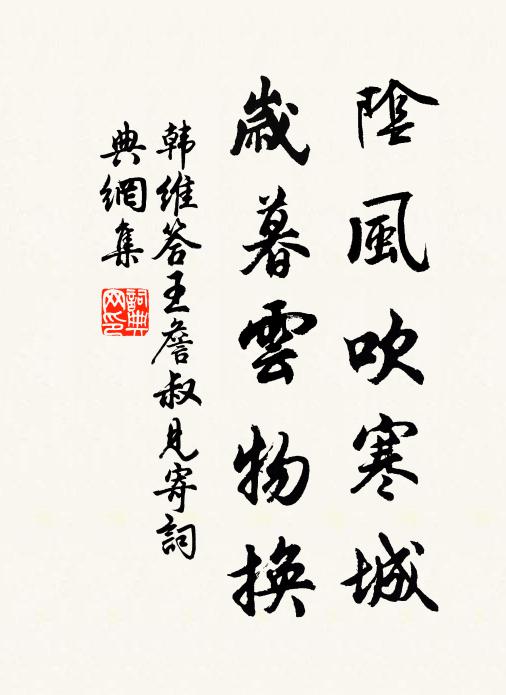 陰風吹寒城
歲暮雲物換
韩維答王詹叔見寄詞
典網集
詞典網印